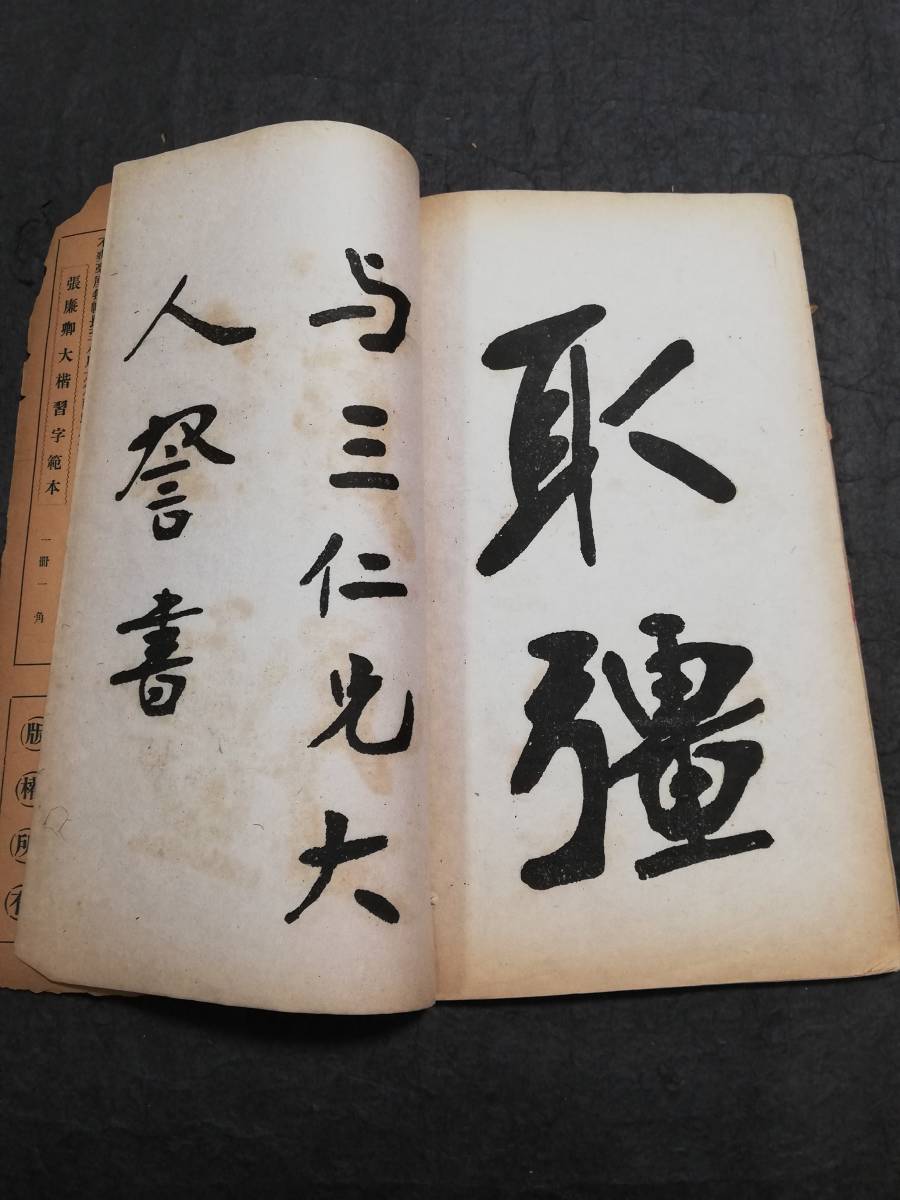 取
彊
与三仁兄大
人詧書
張廉卿大楷習字範本 一冊一角
版權所有